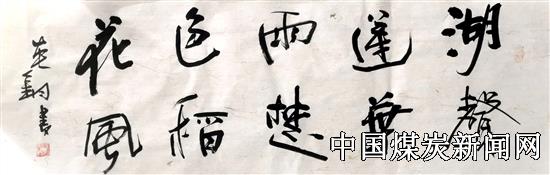 湖聲
蓮葉
雨楚
色稻
花風
書
中国煤炭新闻网